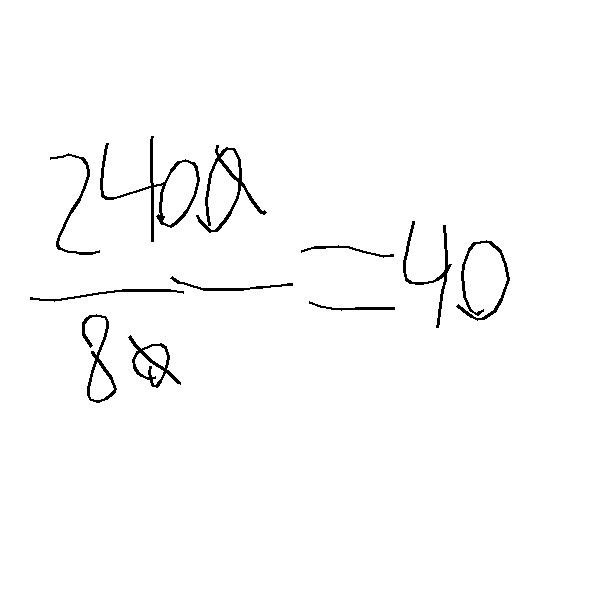 2400
80
= 40